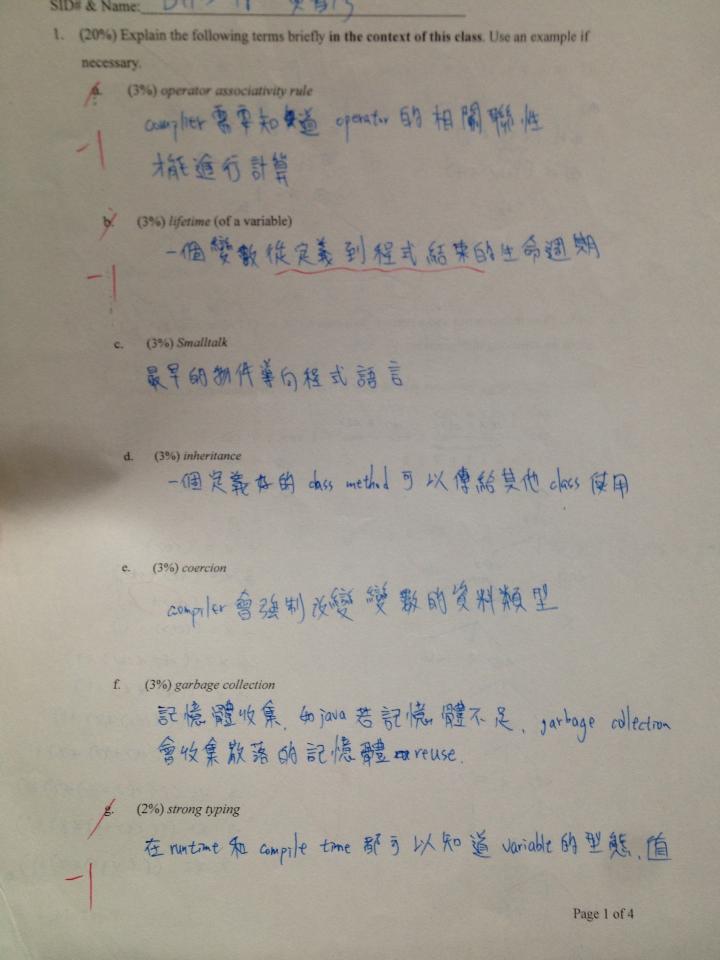 SID# & Name:
1. (20%) Explain the following terms briefly in the context of this class. Use an example if
necessary.
a. (3%) operator associativity rule
complier 需要知道 operator 的相關聯性
才能進行計算
-1
b. (3%) lifetime (of a variable)
一個變數從定義到程式結束的生命週期
-1
c. (3%) Smalltalk
最早的物件導向程式語言
d. (3%) inheritance
一個定義好的 class method 可以傳給其他 class 使用
e. (3%) coercion
compiler 會強制改變變數的資料類型
f. (3%) garbage collection
記憶體收集, 如java若記憶體不足, garbage collection
會收集散落的記憶體reuse.
g. (2%) strong typing
在 runtime 和 compile time 都可以知道 variable 的型態、值
-1
Page 1 of 4